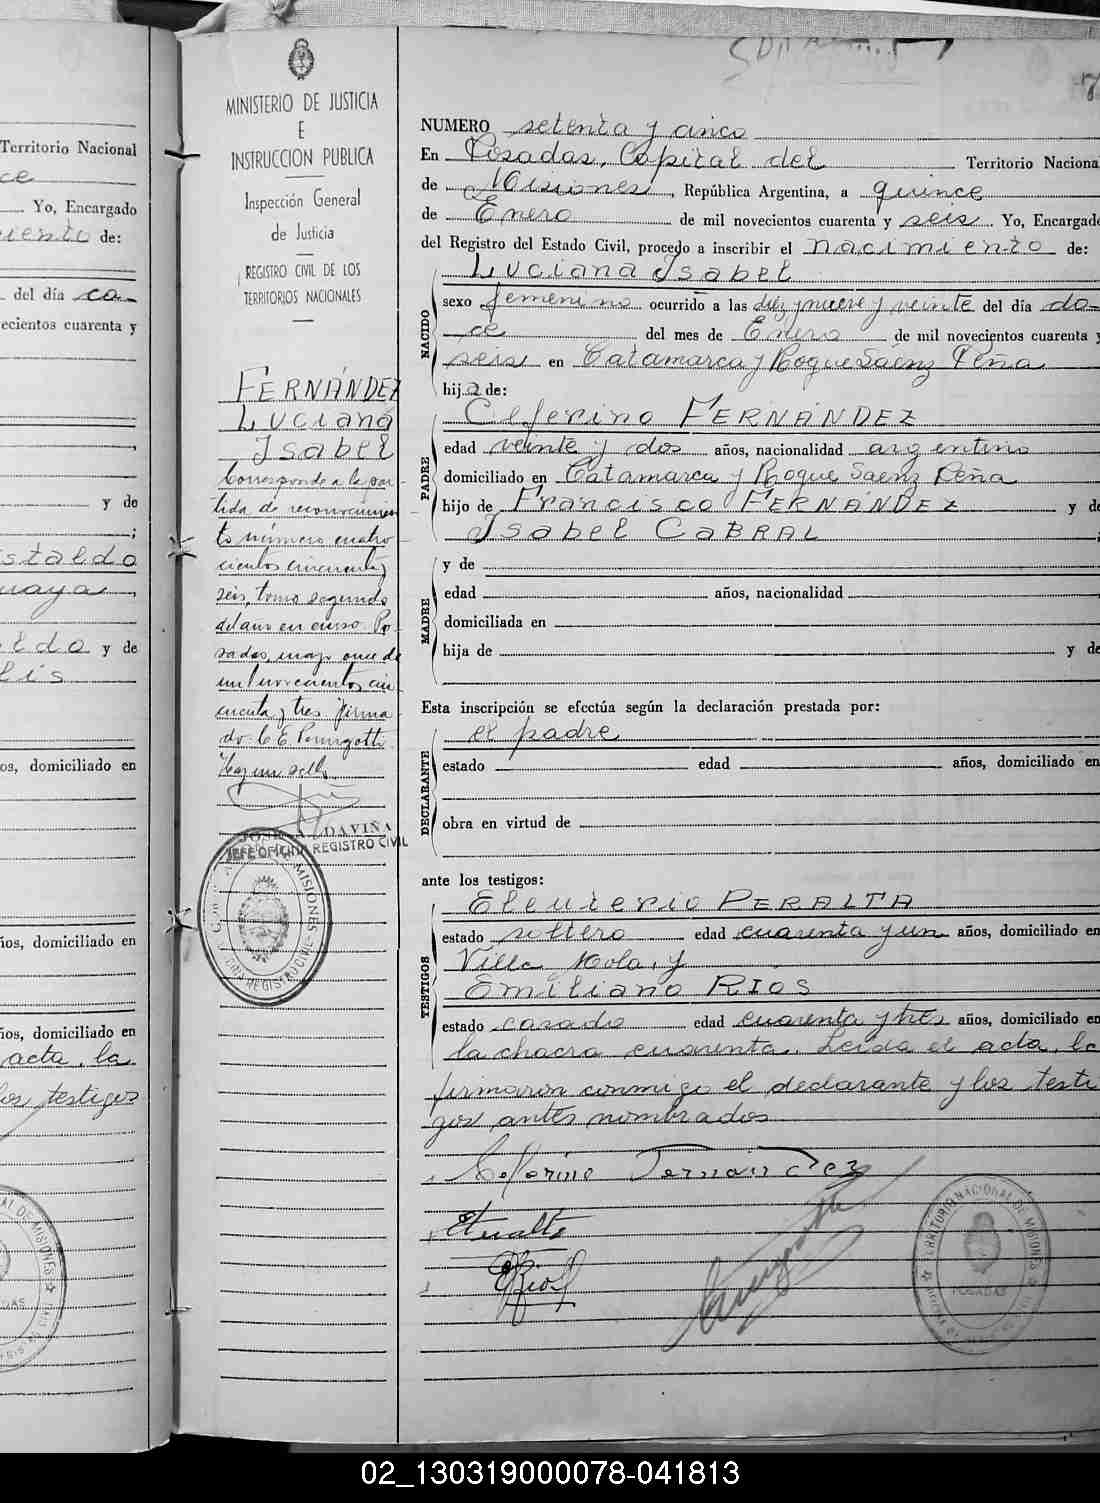 Territorio Nacional
ce
Yo, Encargado
iento de:
del día ca-
ecientos cuarenta y
y de
staldo
uaya
ldo y de
lis
os, domiciliado en
ños, domiciliado en
ños, domiciliado en
acta, la
los testigos
MINISTERIO DE JUSTICIA
E
INSTRUCCION PUBLICA
Inspección General
de Justicia
REGISTRO CIVIL DE LOS
TERRITORIOS NACIONALES
FERNÁNDEZ
Luciana
Isabel
Corresponde a la par-
tida de reconocimien-
to número cuatro-
cientos cincuenta y
seis, tomo segundo
del año en curso. Po-
sadas, mayo once de
mil novecientos cin-
cuenta y tres. Firma-
do: C. E. Perugotti.
Hay un sello
JOSE A. DAVIÑA
JEFE OFICINA REGISTRO CIVIL
MISIONES
REGISTRO CIVIL
NUMERO setenta y cinco
En Posadas, Capital del Territorio Nacional
de Misiones, República Argentina, a quince
de Enero de mil novecientos cuarenta y seis. Yo, Encargado
del Registro del Estado Civil, procedo a inscribir el nacimiento de:
Luciana Isabel
NACIDO
sexo femenino ocurrido a las diez y nueve y veinte del día do-
ce del mes de Enero de mil novecientos cuarenta y
seis en Catamarca y Roque Sáenz Peña
hija de:
PADRE
Ceferino FERNÁNDEZ
edad veinte y dos años, nacionalidad argentino
domiciliado en Catamarca y Roque Saenz Peña
hijo de Francisco FERNÁNDEZ y de
Isabel CABRAL;
MADRE
y de
edad años, nacionalidad
domiciliada en
hija de y de
Esta inscripción se efectúa según la declaración prestada por:
DECLARANTE
el padre
estado edad años, domiciliado en
obra en virtud de
ante los testigos:
TESTIGOS
Eleuterio PERALTA
estado soltero edad cuarenta y un años, domiciliado en
Villa Mola, y
Emiliano RIOS
estado casado edad cuarenta y tres años, domiciliado en
la chacra cuarenta. Leída el acta, la
firmaron conmigo el declarante y los testi
gos antes nombrados
Ceferino Fernández
EPeralta
ERios
TERRITORIO NACIONAL DE MISIONES
POSADAS
02_130319000078-041813